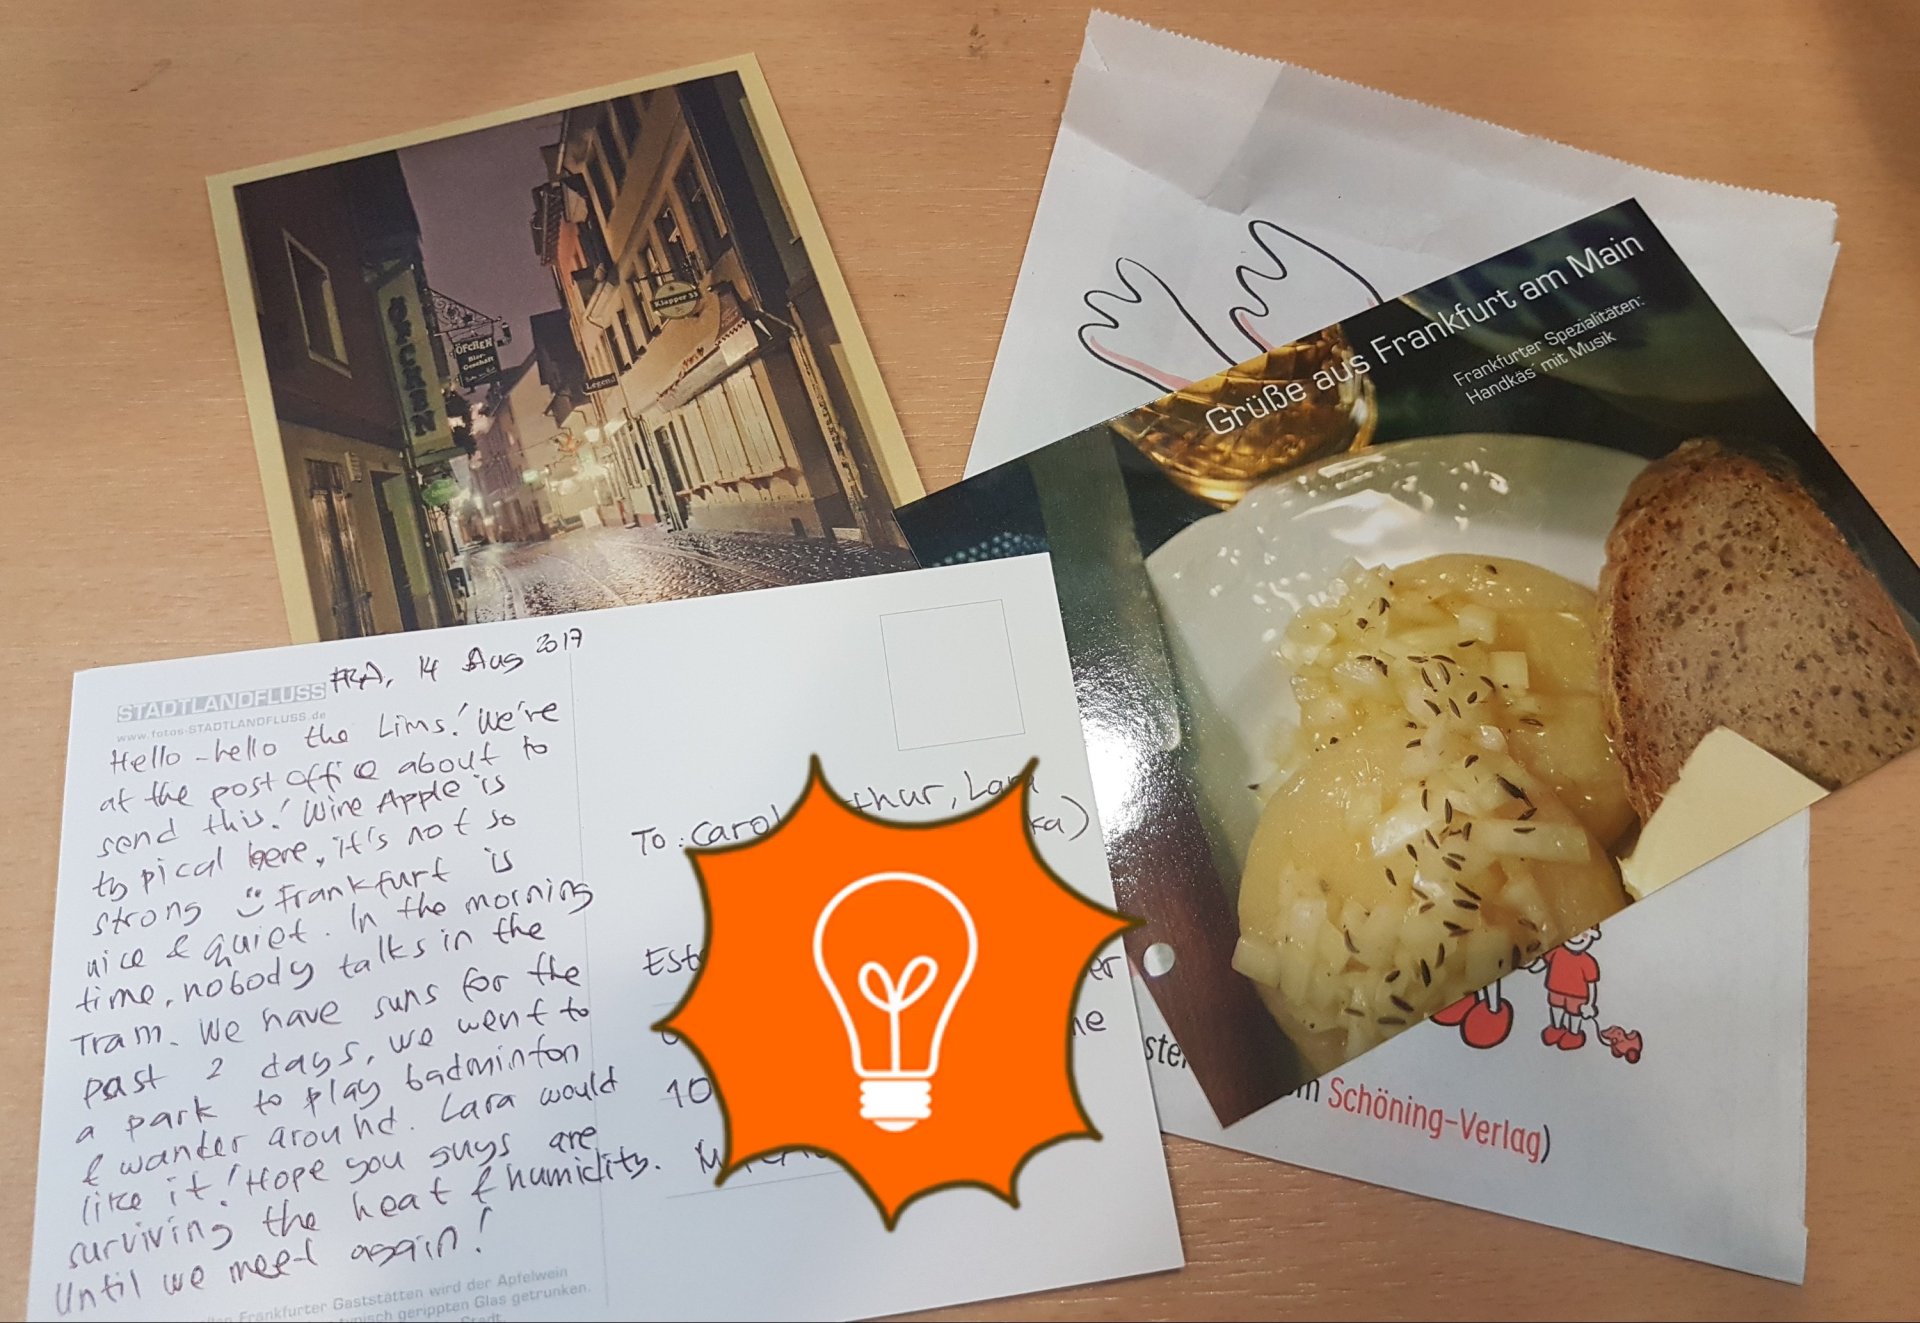 HÖFCHEN
ÖFCHEN
Bier-
Geschäft
Klapper 33
Legend
Grüße aus Frankfurt am Main
Frankfurter Spezialitäten:
Handkäs' mit Musik
FRA, 14 Aug 2017
STADTLANDFLUSS
www.fotos-STADTLANDFLUSS.de
Hello-hello the Lims! We're
at the post office about to
send this! Wine Apple is
typical here, it's not so
strong Frankfurt is
nice & quiet. In the morning
time, nobody talks in the
Tram. We have suns for the
past 2 days, we went to
a park to play badminton
& wander around. Lara would
like it! Hope you guys are
surviving the heat & humidity.
Until we meet again!
Frankfurter Gaststätten wird der Apfelwein
typisch gerippten Glas getrunken.
Stadt.
To: Carol thur, Lara
ka)
Est er
ne
10
Schöning-Verlag)